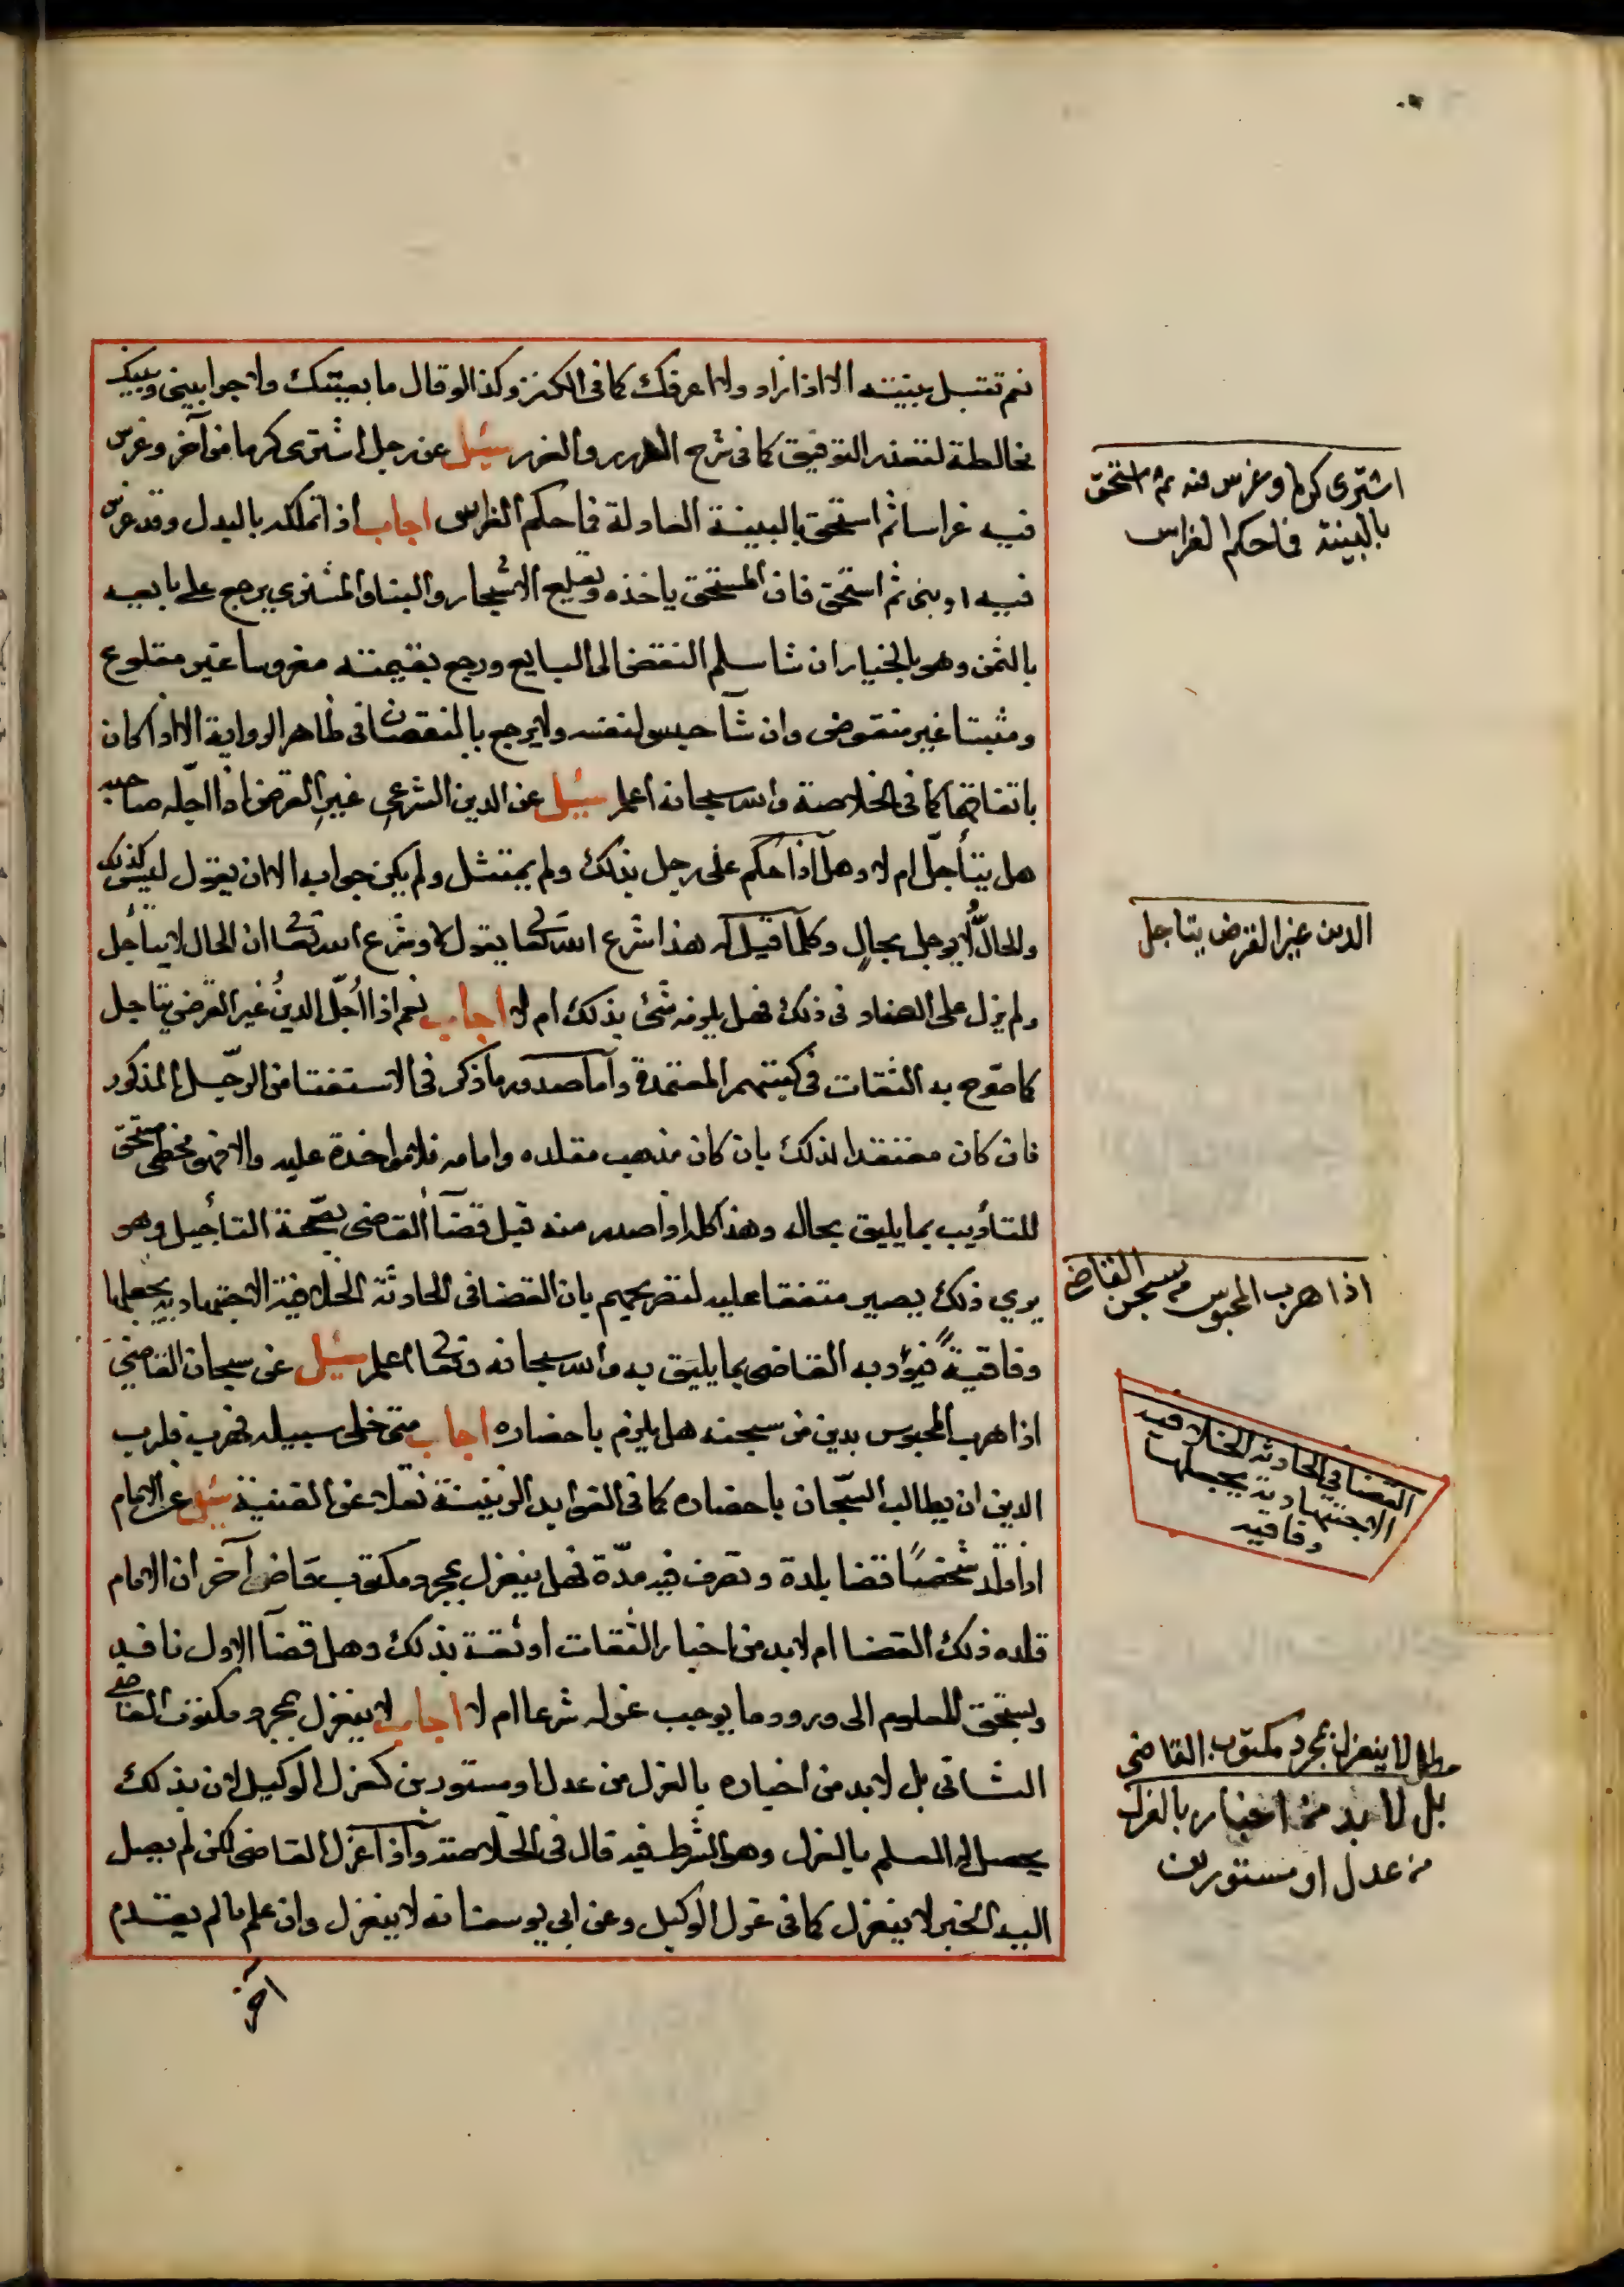 نعم تقبل بينته الا اذا زاد ولا اعرفك كما في الكنز وكذا لو قال ما بعتك ولا جرا بيني وبينك
مخالطة لتعذر التوفيق كما في شرح الدرر والغرر سئل عن رجل اشترى كرما من آخر وغرس
فيه غراسا ثم استحق بالبينة العادلة فما حكم الغراس اجاب اذا تملكه بالبدل وقد غرس
فيه او بنى ثم استحق فان المستحق ياخذه وتقلع الاشجار والبنا والمشتري يرجع على بايعه
بالثمن وهو بالخيار ان شا سلم النقض الى البايع ورجع بقيمته مغروسا غير مقلوع
ومثبتا غير منقوض وان شآ حبس لنفسه ولا يرجع بالنقصان في ظاهر الرواية الا اذا كان
باتفاقهما كما في الخلاصة والله سبحانه اعلم سئل عن الدين الشرعي غير القرض اذا اجله صاحبه
هل يتأجل ام لا وهل اذا حكم على رجل بذلك ولم يمتثل ولم يكن جوابه الا ان يقول ليس كذلك
والحال لا يوجل بحال وكلما قيل له هذا شرع الله تعالى يقول لا وشرع الله تعالى ان الحال لا يتاجل
ولم يزل على العناد في ذلك فهل يلزمه شئ بذلك ام لا اجاب نعم اذا اجل الدين غير القرض يتاجل
كما صرح به الثقات في كتبهم المعتمدة واما صدور ما ذكر في الاستفتا من الرجل المذكور
فان كان معتقدا لذلك بان كان مذهب مقلده وامامه فلا مواخذة عليه والا فهو مخطى مستحق
للتأديب بما يليق بحاله وهذا كله اذا صدر منه قبل قضآ القاضى بصحة التأجيل وهو
يري ذلك يصير متفقا عليه لتصريحهم بان القضا في الحادثة الخلافية الاجتهادية يجعلها
وفاقية فيؤدبه القاضى بما يليق به والله سبحانه وتعالى اعلم سئل عن سجان القاضي
اذا هرب المحبوس بدين من سجنه هل يلزم باحضاره اجاب متى خلى سبيله فهرب فلرب
الدين ان يطالب السجان باحضاره كما في الفوايد الزينية نقلا عن القنية سئل عن الامام
اذا قلد شخصا قضا بلدة وتصرف فيه مدة فهل ينعزل بمجرد مكتوب قاض آخر ان الامام
قلده ذلك القضا ام لا بد من اخبار الثقات او ثقة بذلك وهل قضآ الاول نافذ
ويستحق المعلوم الى ورود ما يوجب عزله شرعا ام لا اجاب لا ينعزل بمجرد مكتوب القاضي
الثانى بل لا بد من اخباره بالعزل من عدل او مستورين كعزل الوكيل لان بذلك
يحصل له العلم بالعزل وهو الشرط فيه قال في الخلاصة واذا عزل القاضى لكن لم يصل
اليه الخبر لا ينعزل كما في عزل الوكيل وعن ابي يوسف انه لا ينعزل وان علم ما لم يقدم
اشترى كرما وغرس فيه ثم استحق
بالبينة فما حكم الغراس
الدين غير القرض يتاجل
اذا هرب المحبوس من سجن القاضى
القضا في الحادثة الخلافيه
الاجتهاديه يجعلها
وفاقيه
مطلب لا ينعزل بمجرد مكتوب القاضى
بل لا بد من اخبار بالعزل
من عدل او مستورين